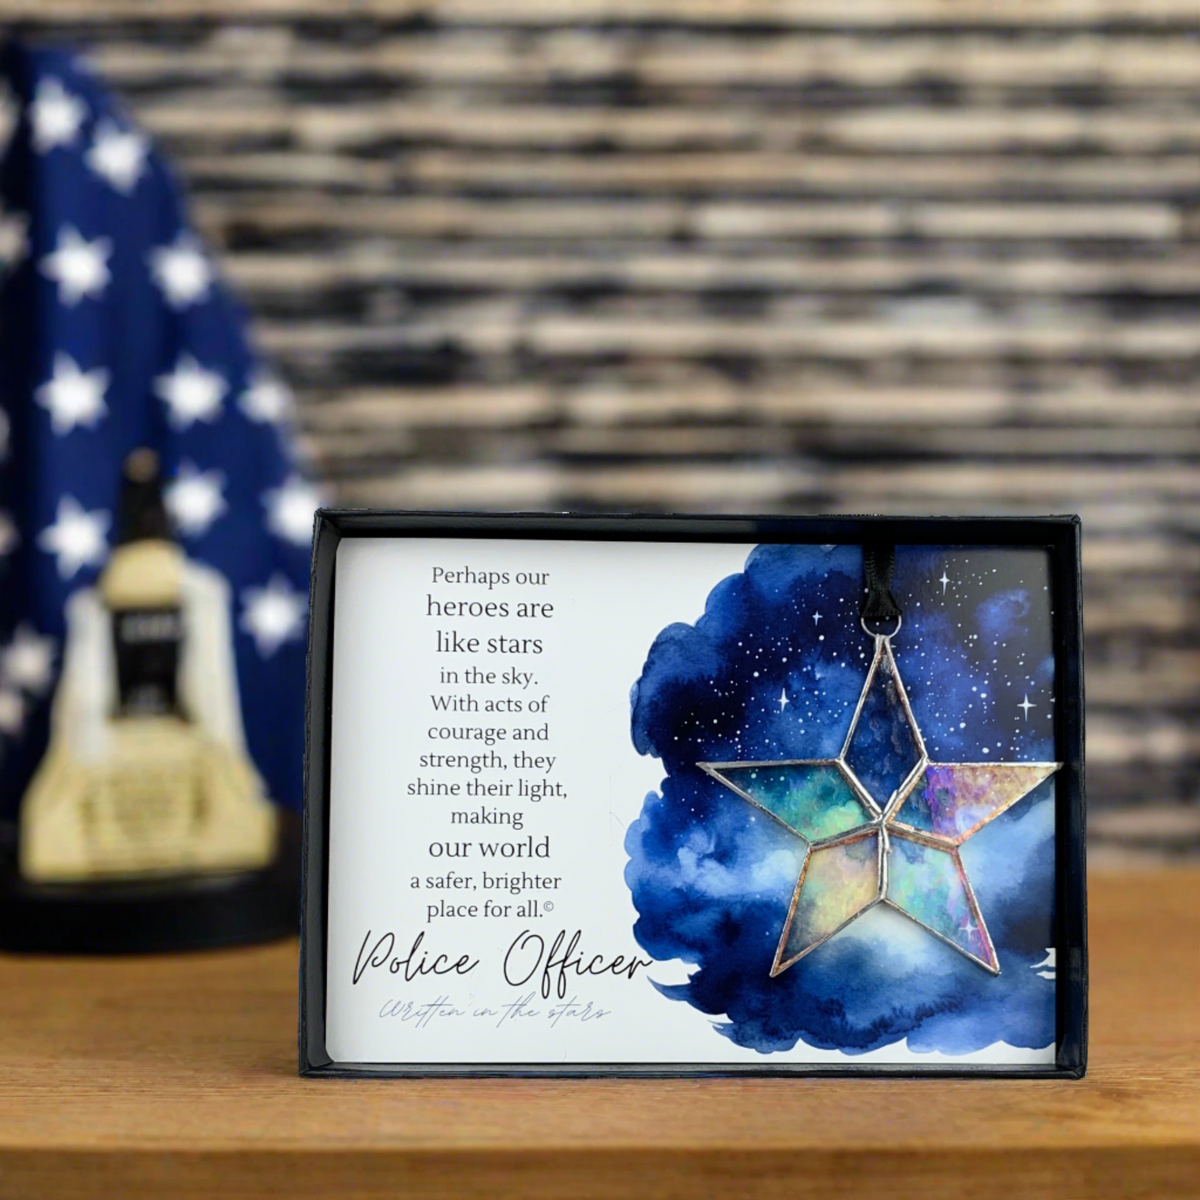 Perhaps our
heroes are
like stars
in the sky.
With acts of
courage and
strength, they
shine their light,
making
our world
a safer, brighter
place for all.©
Police Officer
written in the stars